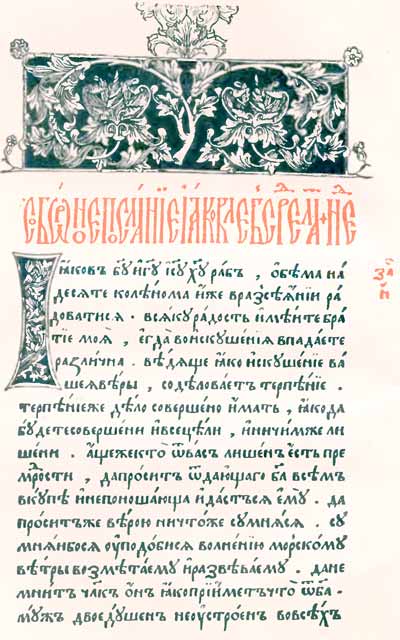 СЪБОРНОЕ ПОСЛАНІЕ ІАКОВЛЕ
Іꙗковъ бг҃у и гд҇у іс҃у хр҇ту рабъ , обѣма на
десяте колѣнома иже вразсѣянїи ра
доватися . всякурадость имѣите бра
тїе моѧ , егда воискушенїя впадаете
различна . вѣдяще ꙗко искушенїе ва
шеявѣры , содѣловаетъ терпѣнїе .
терпѣнїеже дѣло совершено имать , ꙗкода
будетесовершени ивсецѣли , иничимже ли
шени . ащежекто ѿвасъ лишенъ есть пре
мдрости , дапроситъ ѿдающаго бг҃а всѣмъ
вкупѣ инепоношающа идастьсѧ емꙋ . да
проситъже вѣрою ничтоже сумняяся . су
мняибося оуподобися волненїю морскому
вѣтры возметаему иразвѣваему . дане
мнитъ чл҃къ онъ ꙗкоприиметъчто ѿ бг҃а .
мужъ двоедушенъ неустроенъ вовсѣхъ